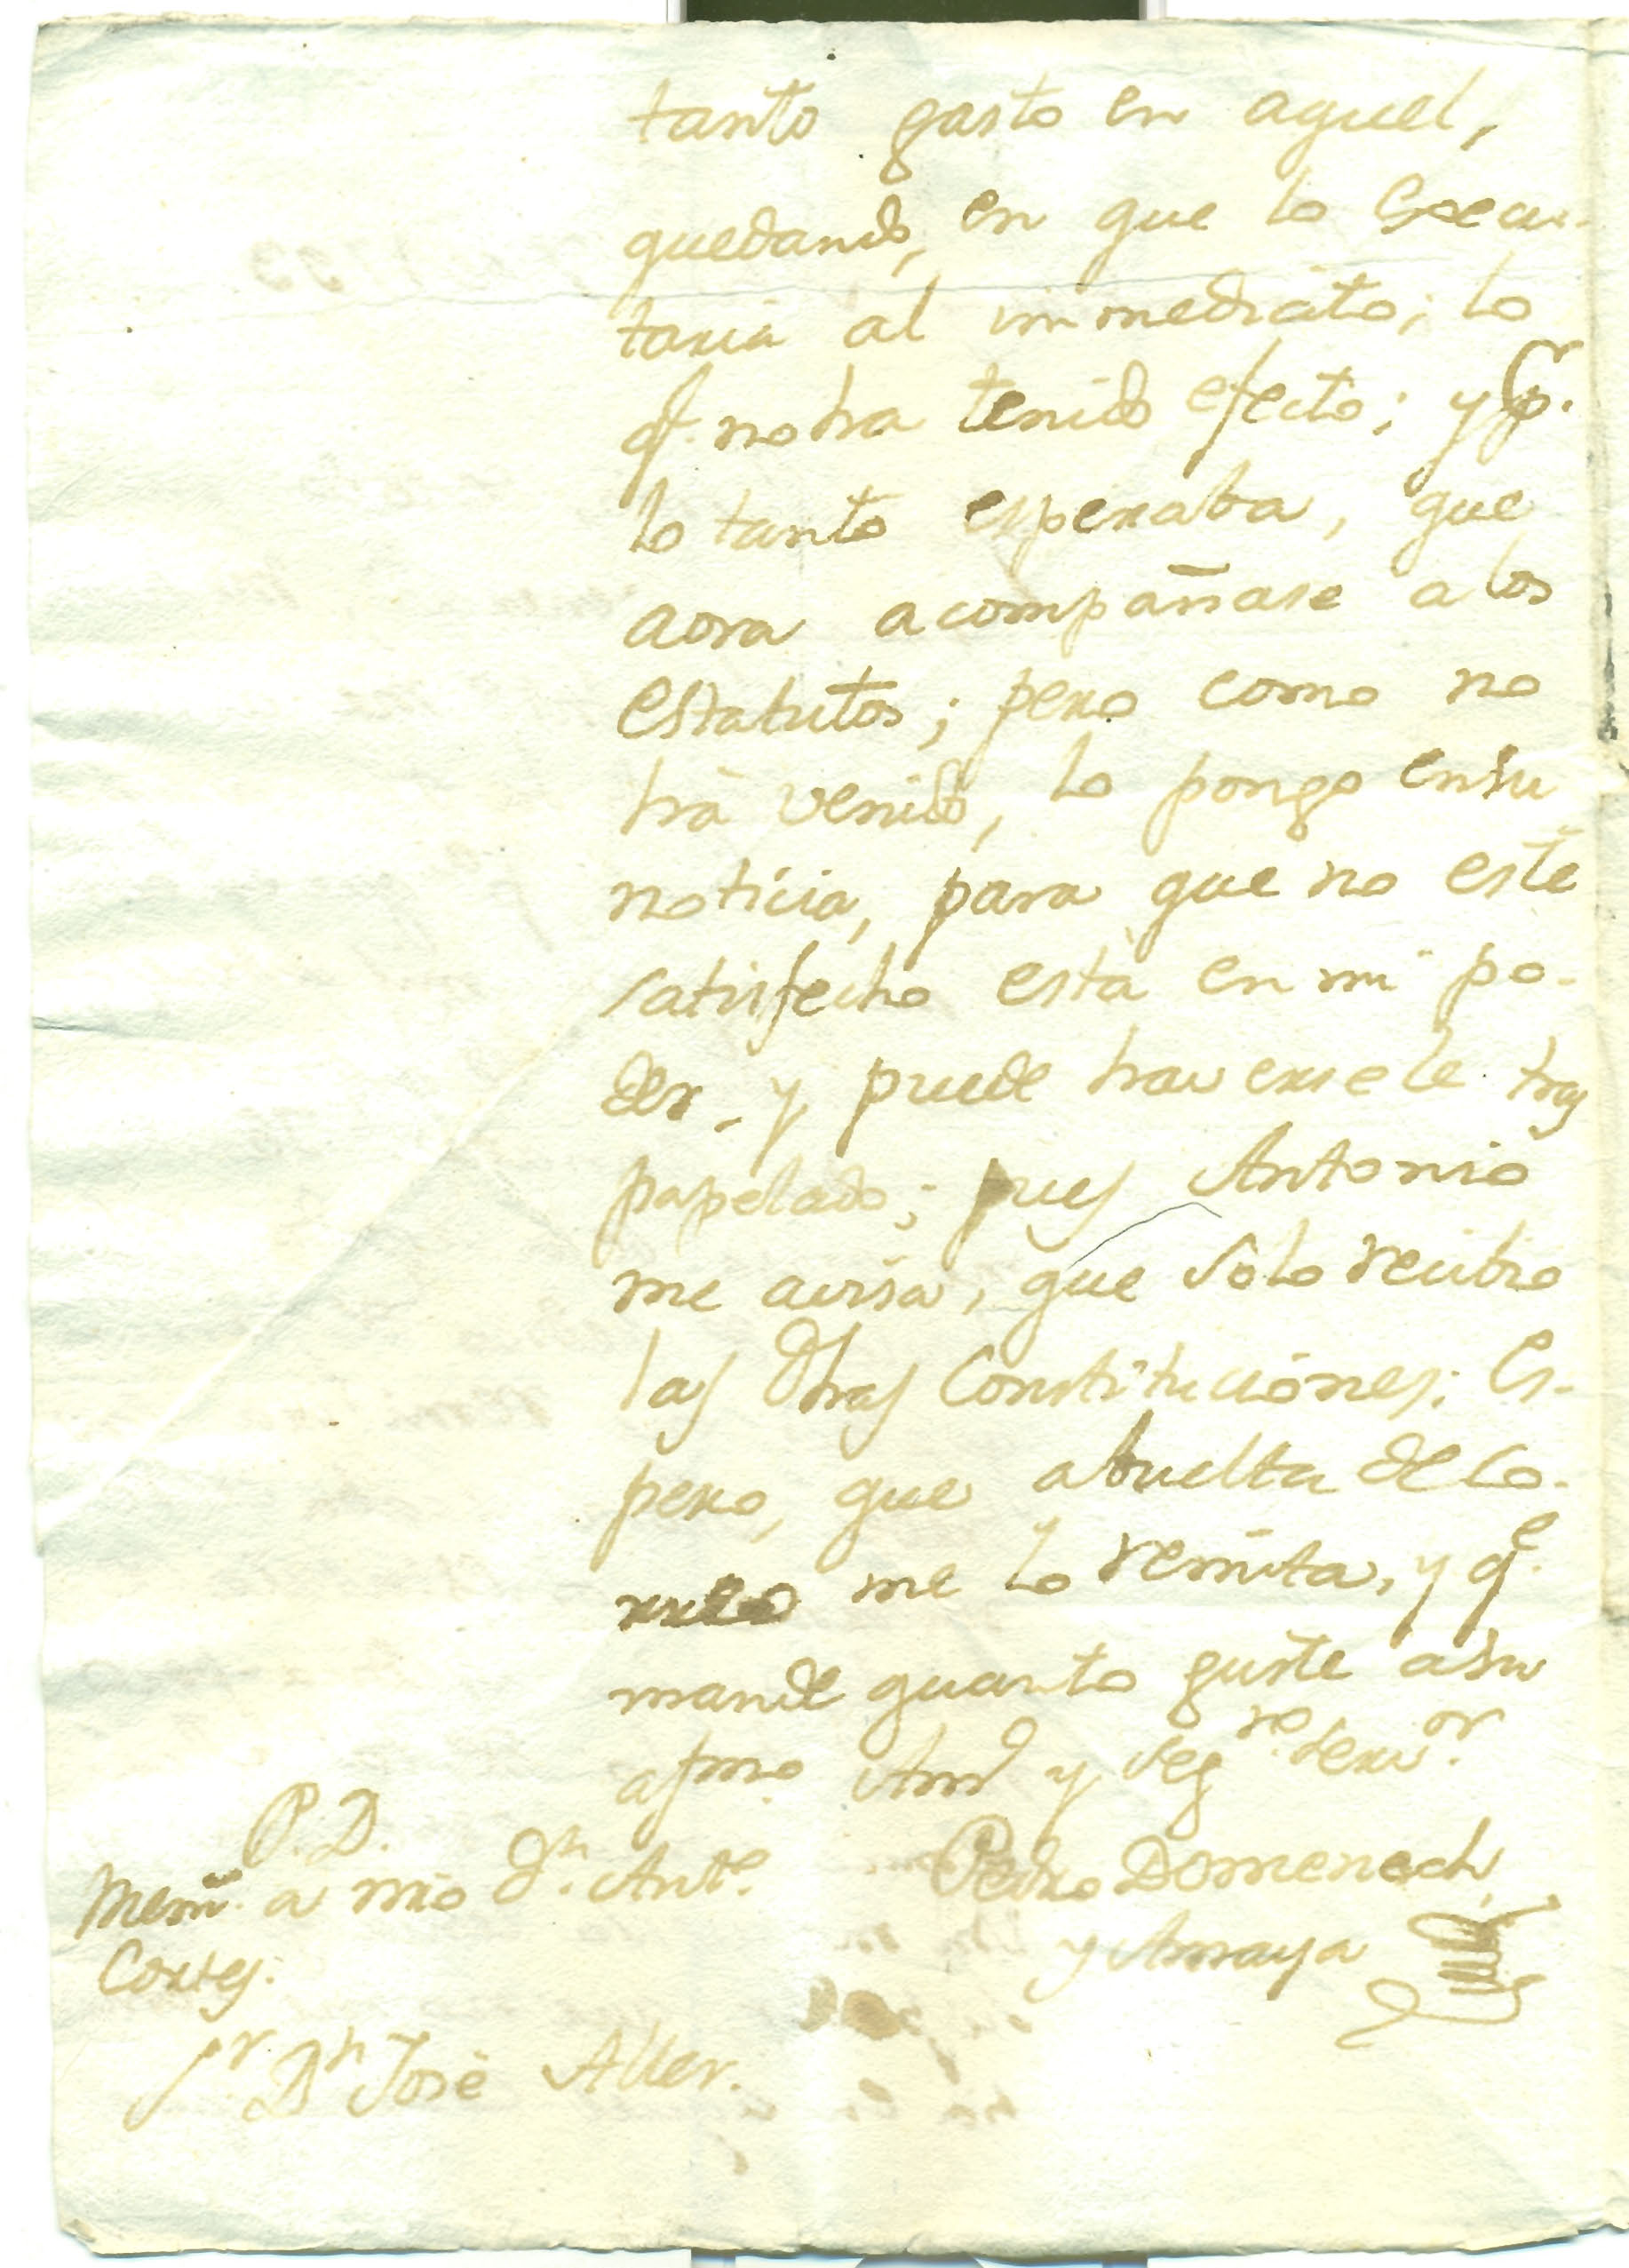 tanto gasto en aquel,
quedando, en que lo Execu-
taria al immediato; lo
q.e no ha tenido efecto; y p.r
lo tanto esperaba, que
aora acompañase a los
estatutos; pero como no
hà venido, lo pongo en su
noticia, para que no este
satisfecho està en mi po-
der, y puede haverse le tras
papelado; pues Antonio
me avisa, que solo recibio
las dhas Constituciones: Es-
pero, que abuelta de Co-
rreo me lo remita, y q.e
mande quanto guste a su
afmo. Am.o y seg.ro serv.r
Pedro Domenech,
y Amaya
P. D.
Mem.s a mio D.n Ant.o
Cortes.
S.r D.n Josè Aller.